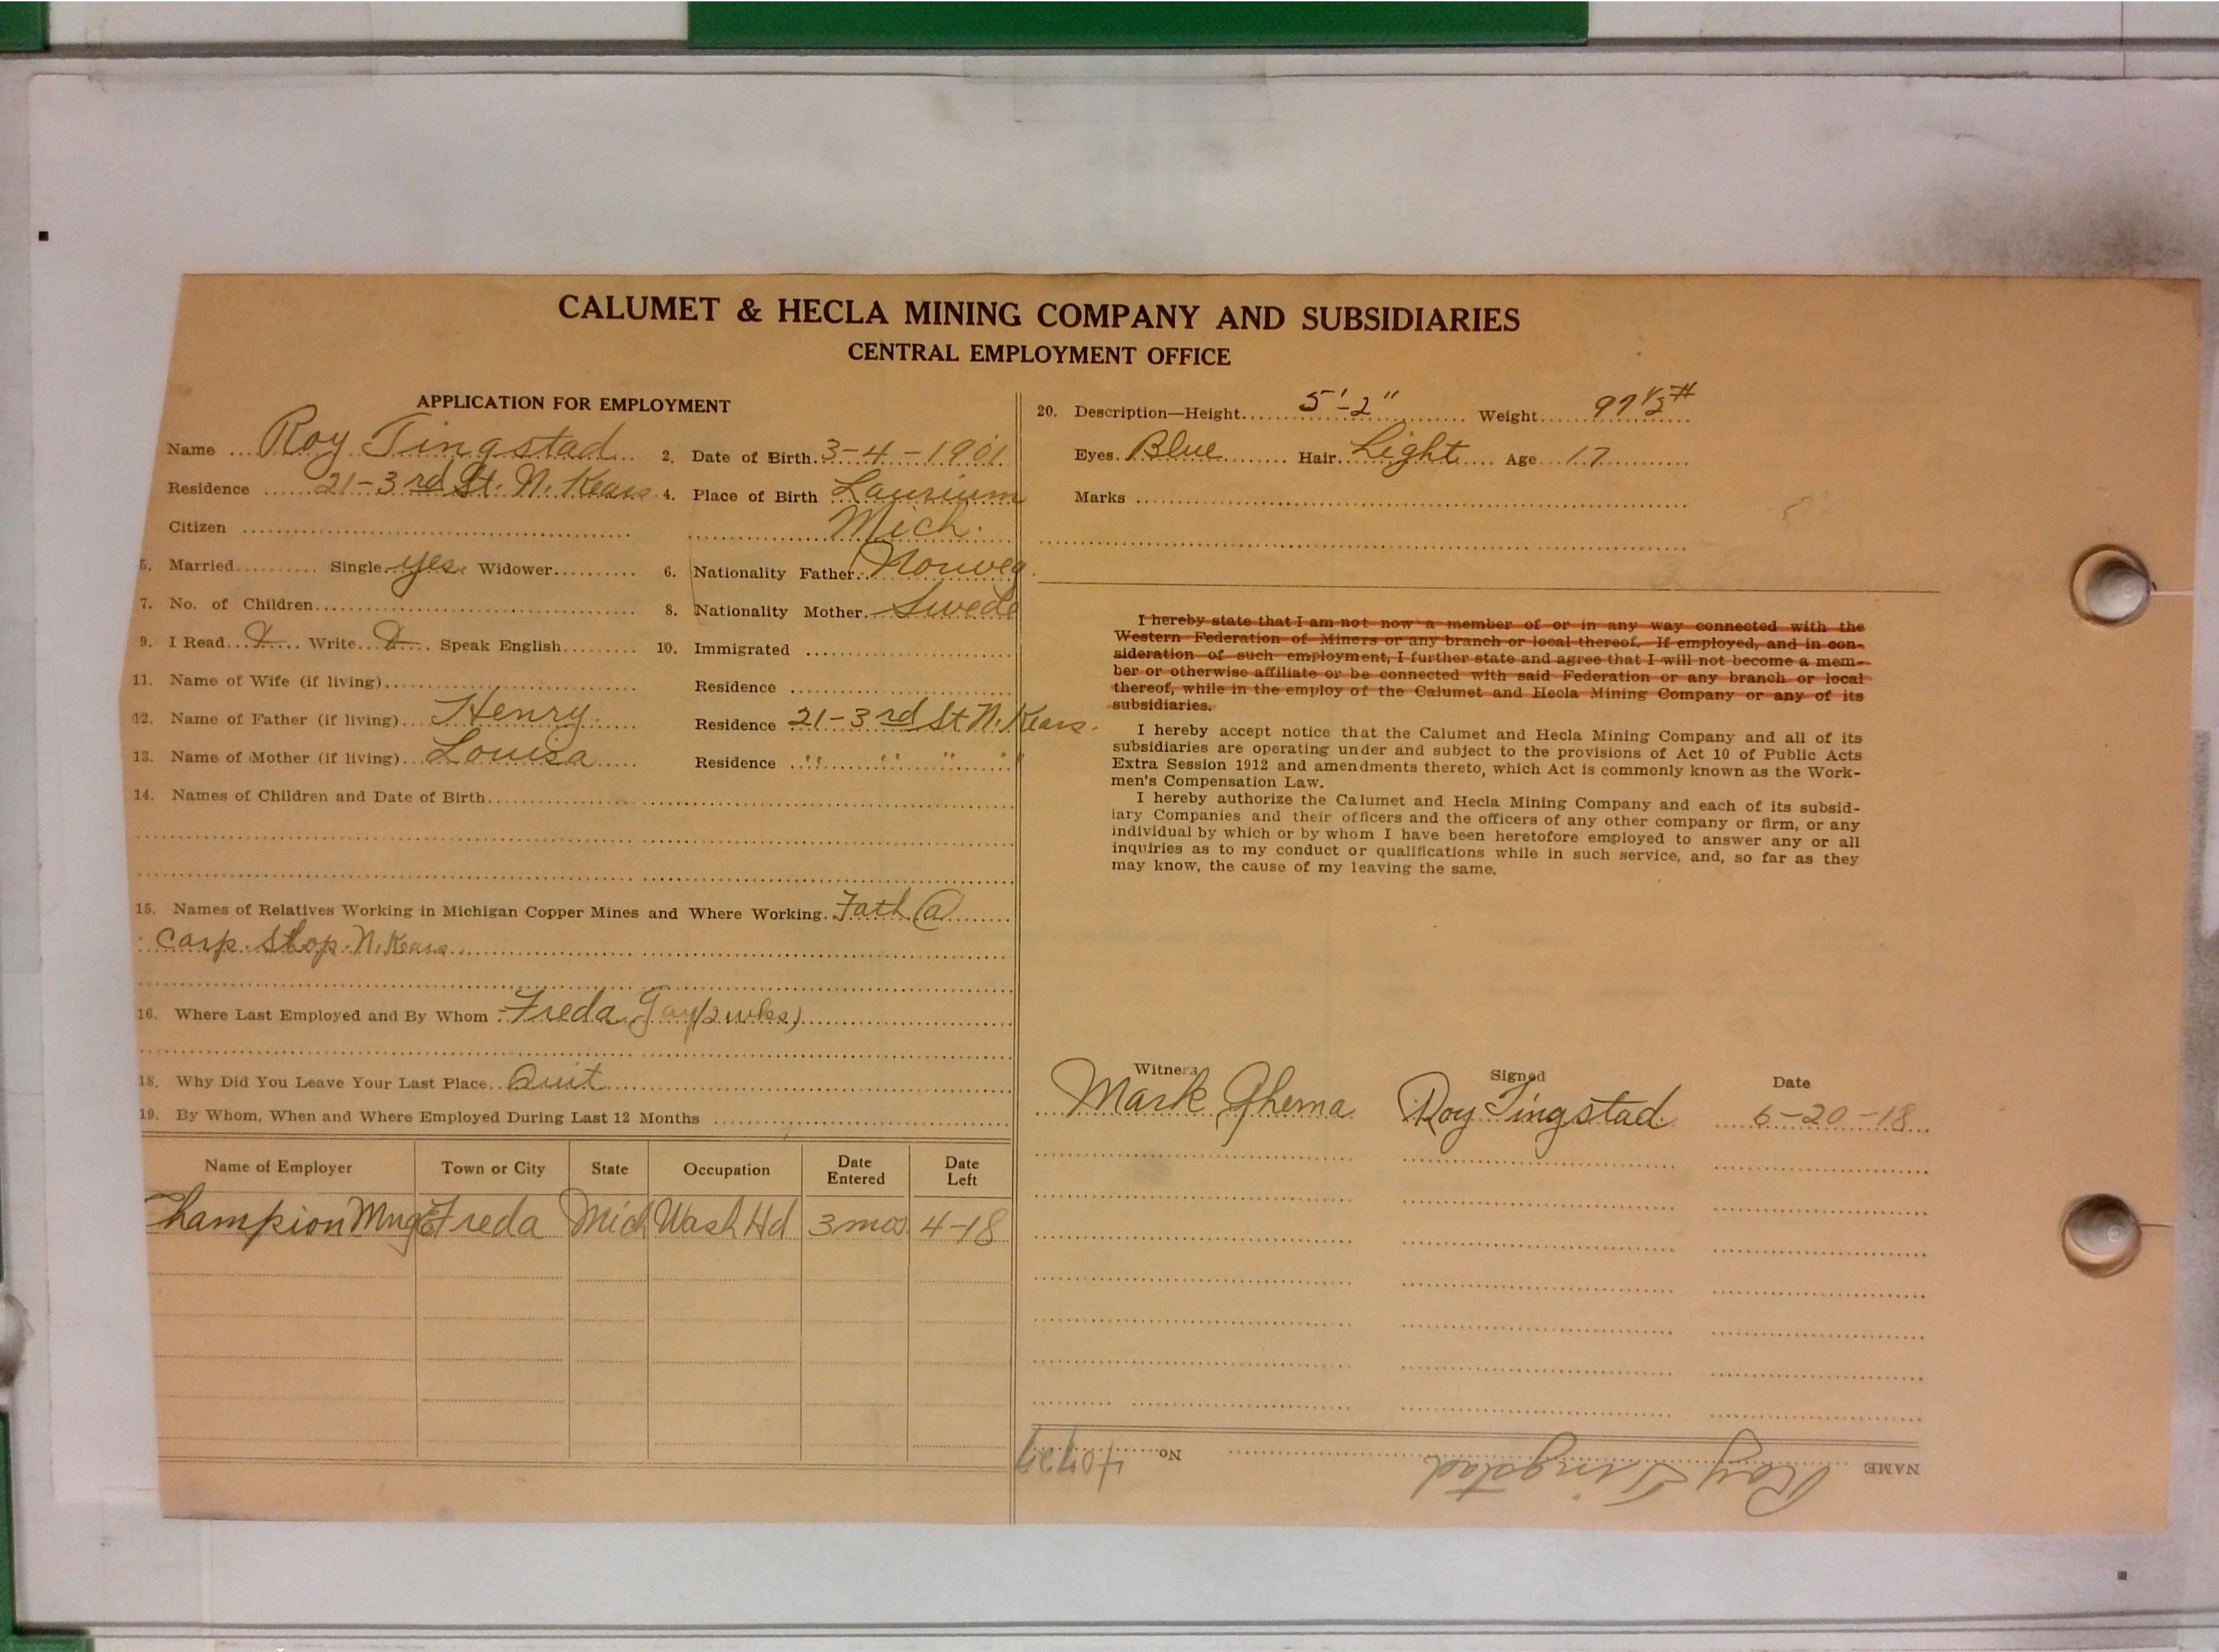 CALUMET & HECLA MINING COMPANY AND SUBSIDIARIES
CENTRAL EMPLOYMENT OFFICE
APPLICATION FOR EMPLOYMENT
Name Roy Tingstad 2. Date of Birth 3-4-1901
Residence 21-3rd St. N. Kears 4. Place of Birth Laurium
Citizen Mich.
5. Married Single yes Widower 6. Nationality Father Norweg
7. No. of Children 8. Nationality Mother Swede
9. I Read Write Speak English 10. Immigrated
11. Name of Wife (if living) Residence
12. Name of Father (if living) Henry Residence 21-3rd St N. Kears.
13. Name of Mother (if living) Louisa Residence " " " "
14. Names of Children and Date of Birth
15. Names of Relatives Working in Michigan Copper Mines and Where Working. Fath @
Carp. Shop. N. Kears
16. Where Last Employed and By Whom Freda (2 wks)
18. Why Did You Leave Your Last Place Quit
19. By Whom, When and Where Employed During Last 12 Months
Name of Employer Town or City State Occupation Date Entered Date Left
Champion Mng Co Freda Mich Wash Hd 3 mos 4-18
20. Description—Height 5'-2" Weight 97 1/2 #
Eyes Blue Hair Light Age 17
Marks
I hereby state that I am not now a member of or in any way connected with the
Western Federation of Miners or any branch or local thereof. If employed, and in con-
sideration of such employment, I further state and agree that I will not become a mem-
ber or otherwise affiliate or be connected with said Federation or any branch or local
thereof, while in the employ of the Calumet and Hecla Mining Company or any of its
subsidiaries.
I hereby accept notice that the Calumet and Hecla Mining Company and all of its
subsidiaries are operating under and subject to the provisions of Act 10 of Public Acts
Extra Session 1912 and amendments thereto, which Act is commonly known as the Work-
men's Compensation Law.
I hereby authorize the Calumet and Hecla Mining Company and each of its subsid-
iary Companies and their officers and the officers of any other company or firm, or any
individual by which or by whom I have been heretofore employed to answer any or all
inquiries as to my conduct or qualifications while in such service, and, so far as they
may know, the cause of my leaving the same.
Witness Signed Date
Mark Ghema Roy Tingstad 6-20-18
NAME Roy Tingstad No.